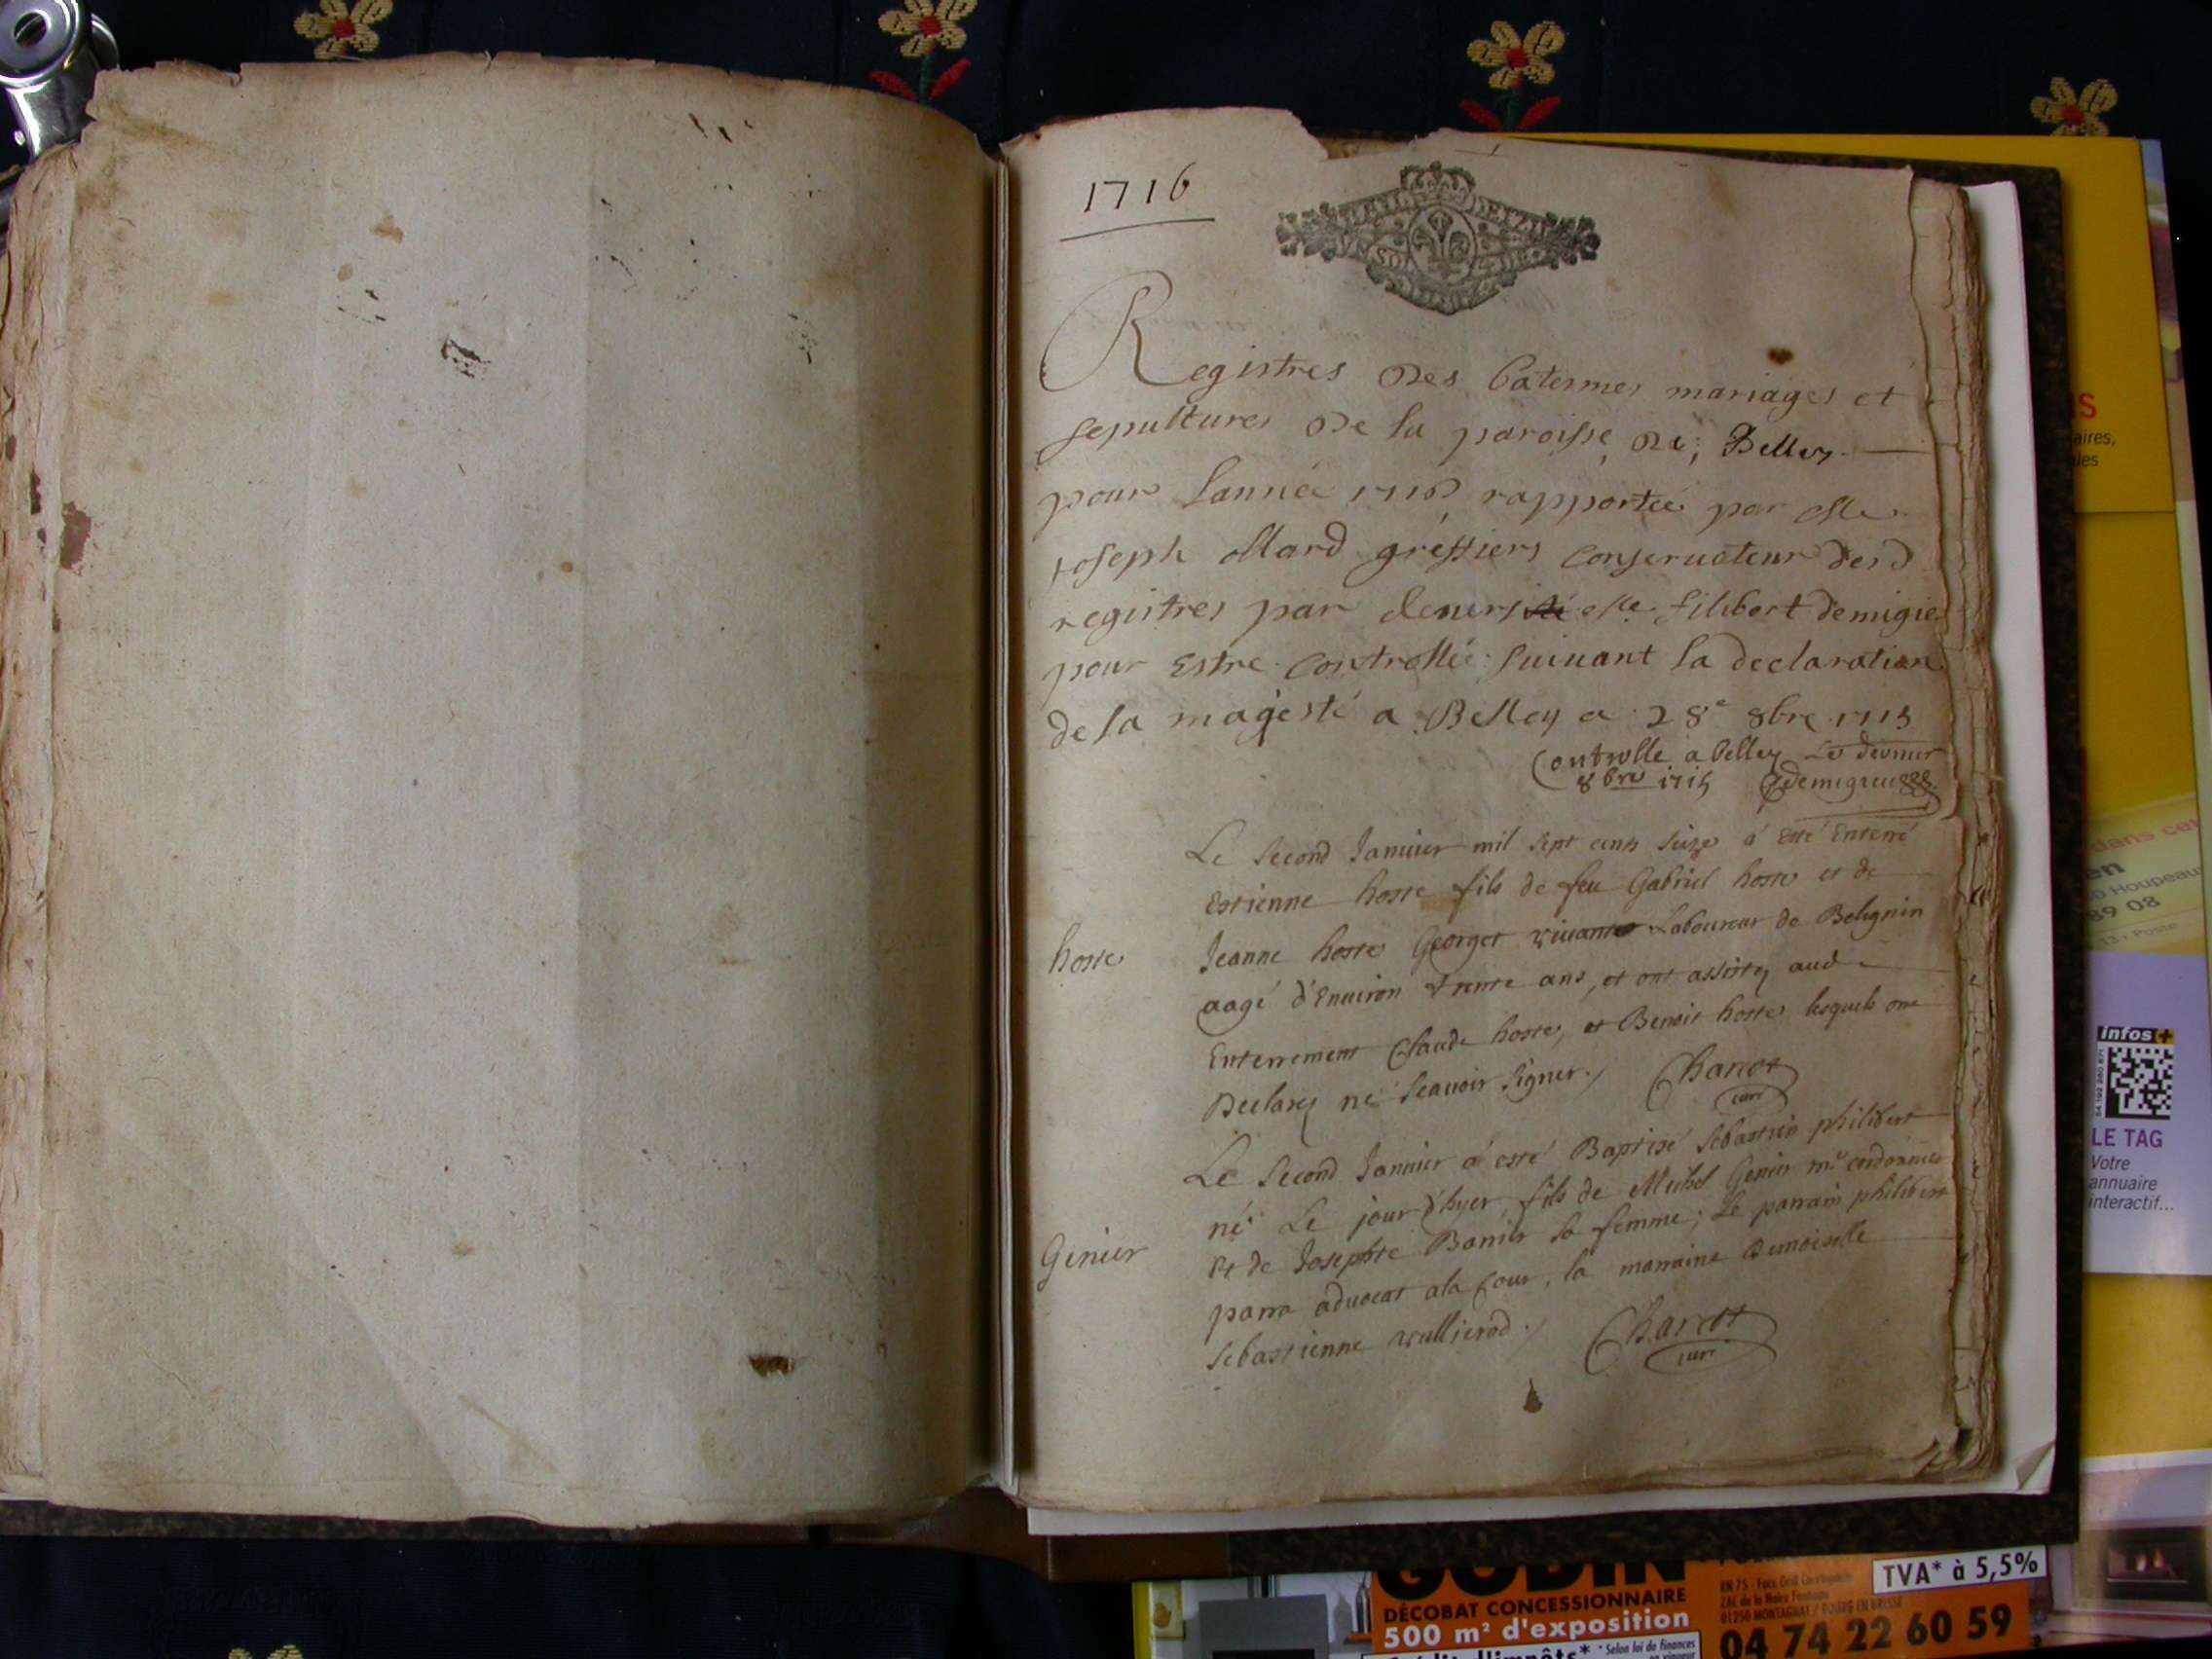 1716
Registres Des batesmes mariages et
sepultures De la paroisse De Belley
pour lannée 1716 rapportée par Me
Joseph Mard gréffiers conservateur desd
registres par devers Me filibert demigieu
pour Estre controllée suivant la declaration
de sa magesté a Belley a 28e 8bre 1715
Controlle a belley Le
8bre 1715 demigieu
Le second Januier mil sept cents seize a esté Enterré
Estienne hoste fils de feu Gabriel hoste et de
hoste
Jeanne hoste Georget vivants Laboureur de Belignin
aagé d'Enuiron trente ans, et ont assistez aud
Enterrement Claude hoste, et Benoit hoste lesquels ont
Declarez ne scauoir signer. Charcot
curé
Le Second Januier a esté Baptisé sebastien philibert
né Le jour d'hyer, fils de Michel Genin me cordonnier
Genier
Et de Josephte Bonnis sa femme; Le parrain philibert
parra aduocat ala Cour, la marraine Demoiselle
sebastienne vullierod. Charcot
curé
infos+
LE TAG
Votre
annuaire
interactif...
GODIN
DÉCOBAT CONCESSIONNAIRE
500 m² d'exposition
* Selon loi de finances
TVA* à 5,5%
01250 MONTAGNAT / BOURG EN BRESSE
04 74 22 60 59